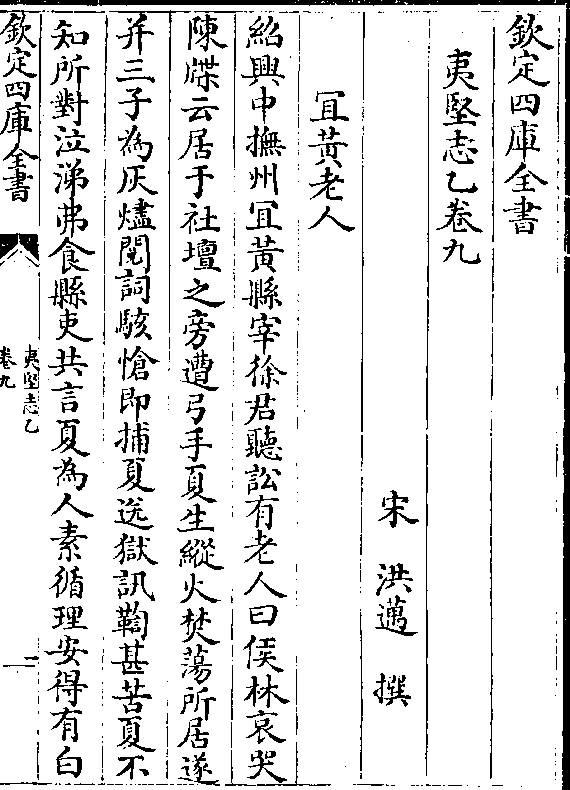 欽定四庫全書
夷堅志乙卷九
宋 洪邁 撰
宜黄老人
紹興中撫州宜黄縣宰徐君聽訟有老人曰侯林哀哭
陳牒云居于社壇之旁遭弓手夏生縱火焚蕩所居遂
并三子為灰燼閱詞駭愴即捕夏送獄訊鞫甚苦夏不
知所對泣涕弗食縣吏共言夏為人素循理安得有白
欽定四庫全書
夷堅志乙
卷九
一